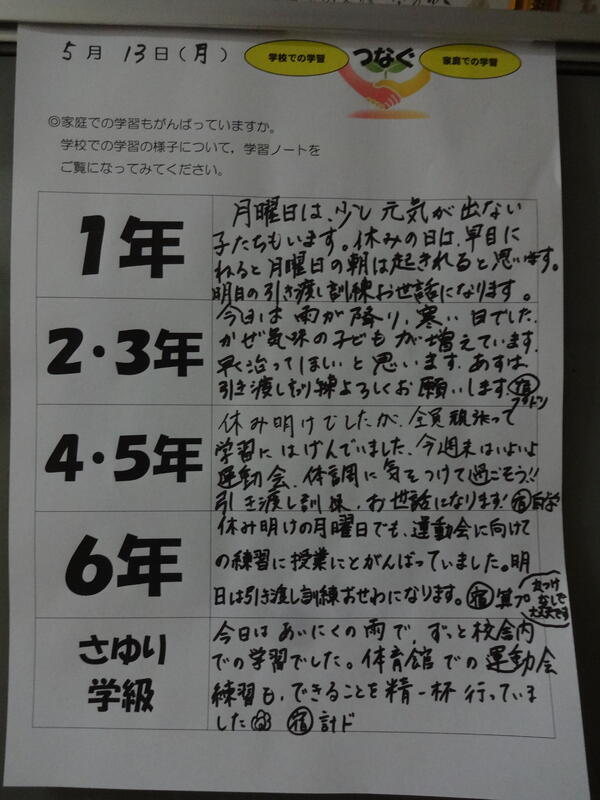 5月 13日(月)
学校での学習 つなぐ 家庭での学習
◎家庭での学習もがんばっていますか。
学校での学習の様子について,学習ノートを
ご覧になってみてください。
1年
月曜日は、少し元気が出ない
子たちもいます。休みの日は、早目に
ねると月曜日の朝は起きれると思います。
明日の引き渡し訓練お世話になります。
2・3年
今日は雨が降り、寒い日でした。
かぜ気味の子どもが増えています。
早く治ってほしいと思います。あすは
引き渡し訓練よろしくお願いします。宿
プリドリ
4・5年
休み明けでしたが、全員頑張って
学習にはげんでいました。今週末はいよいよ
運動会、体調に気をつけて過ごそう!!
引き渡し訓練、お世話になります! 宿自学
6年
休み明けの月曜日でも、運動会に向けて
の練習に授業にとがんばっていました。明
日は引き渡し訓練おせわになります。宿 算プ
丸つけ
なしで
大丈夫です
さゆり
学級
今日はあいにくの雨で、ずっと校舎内
での学習でした。体育館での運動会
練習も、できることを精一杯行っていま
した 宿 計ド